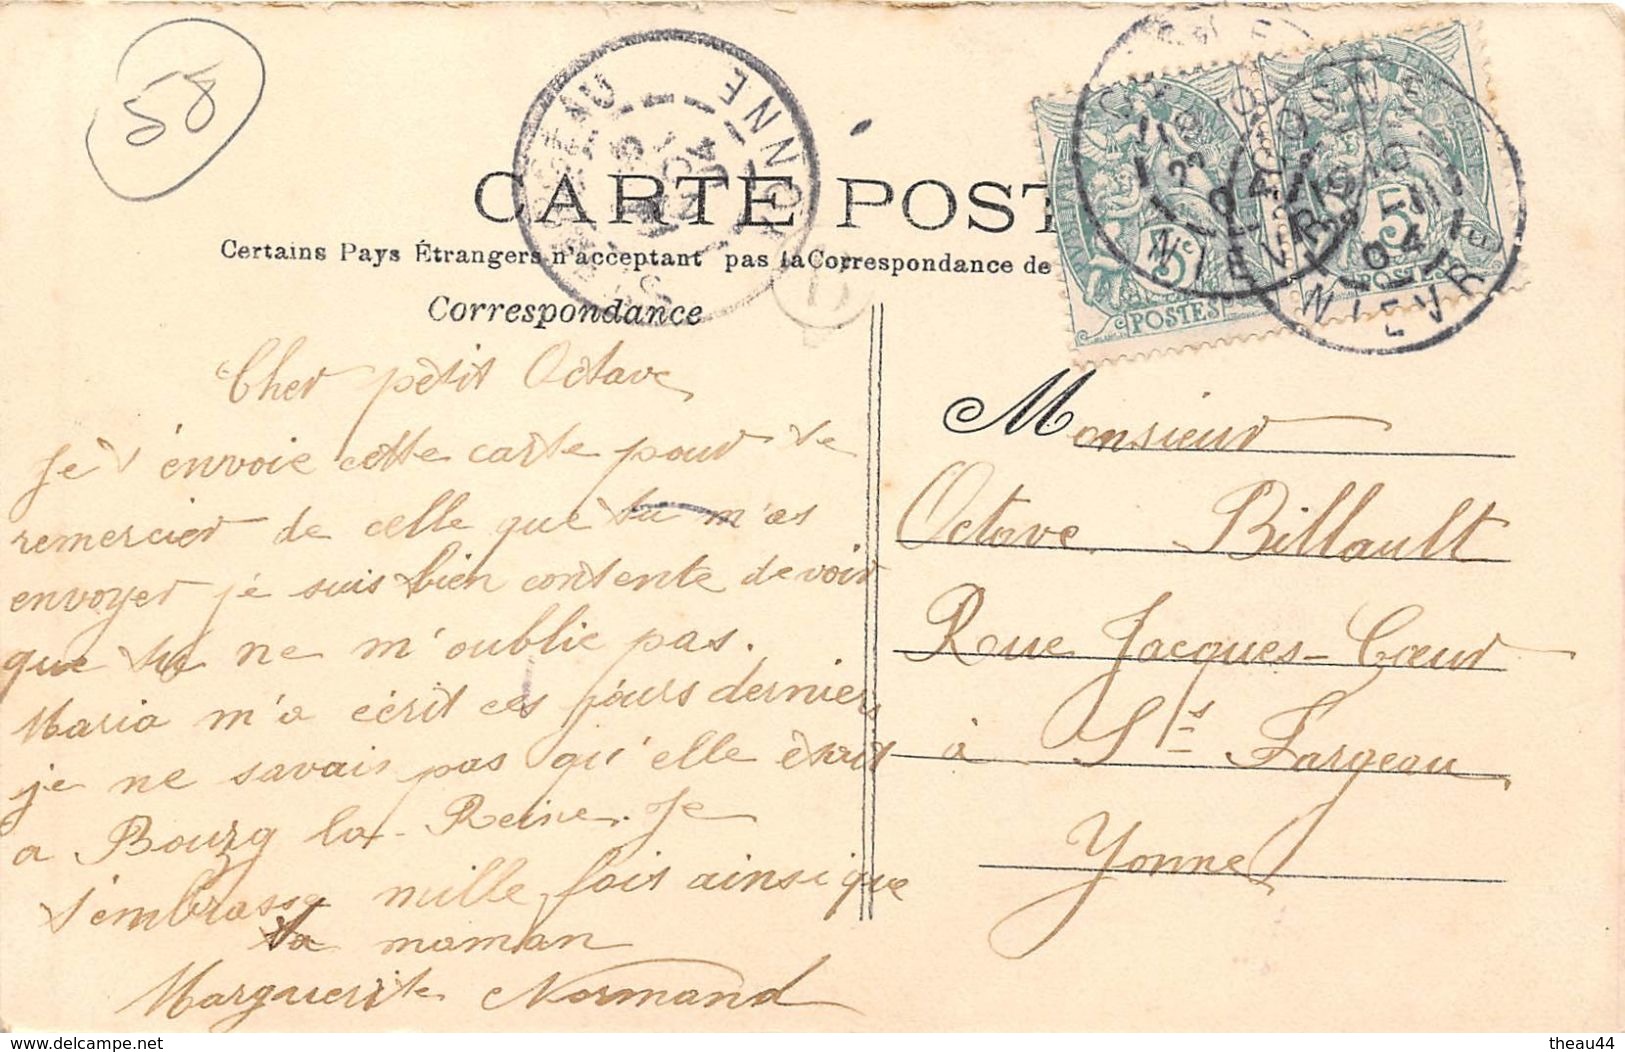 58
CARTE POST
Certains Pays Étrangers n'acceptent pas la Correspondance de
Correspondance
Cher petit Octave
Je t'envoie cette carte pour te
remercier de celle que tu m'as
envoyer je suis bien contente de voir
que tu ne m'oublie pas.
Maria m'a écrit ces jours derniers
je ne savais pas qu'elle était
a Bourg la-Reine. Je
t'embrasse mille fois ainsi que
ta maman
Marguerite Normand
Monsieur
Octave Billault
Rue Jacques-Cœur
à St Fargeau
Yonne
YONNE
NIEVRE
04
5c
POSTES
NIEVRE
04
5c
POSTES
www.delcampe.net
theau44